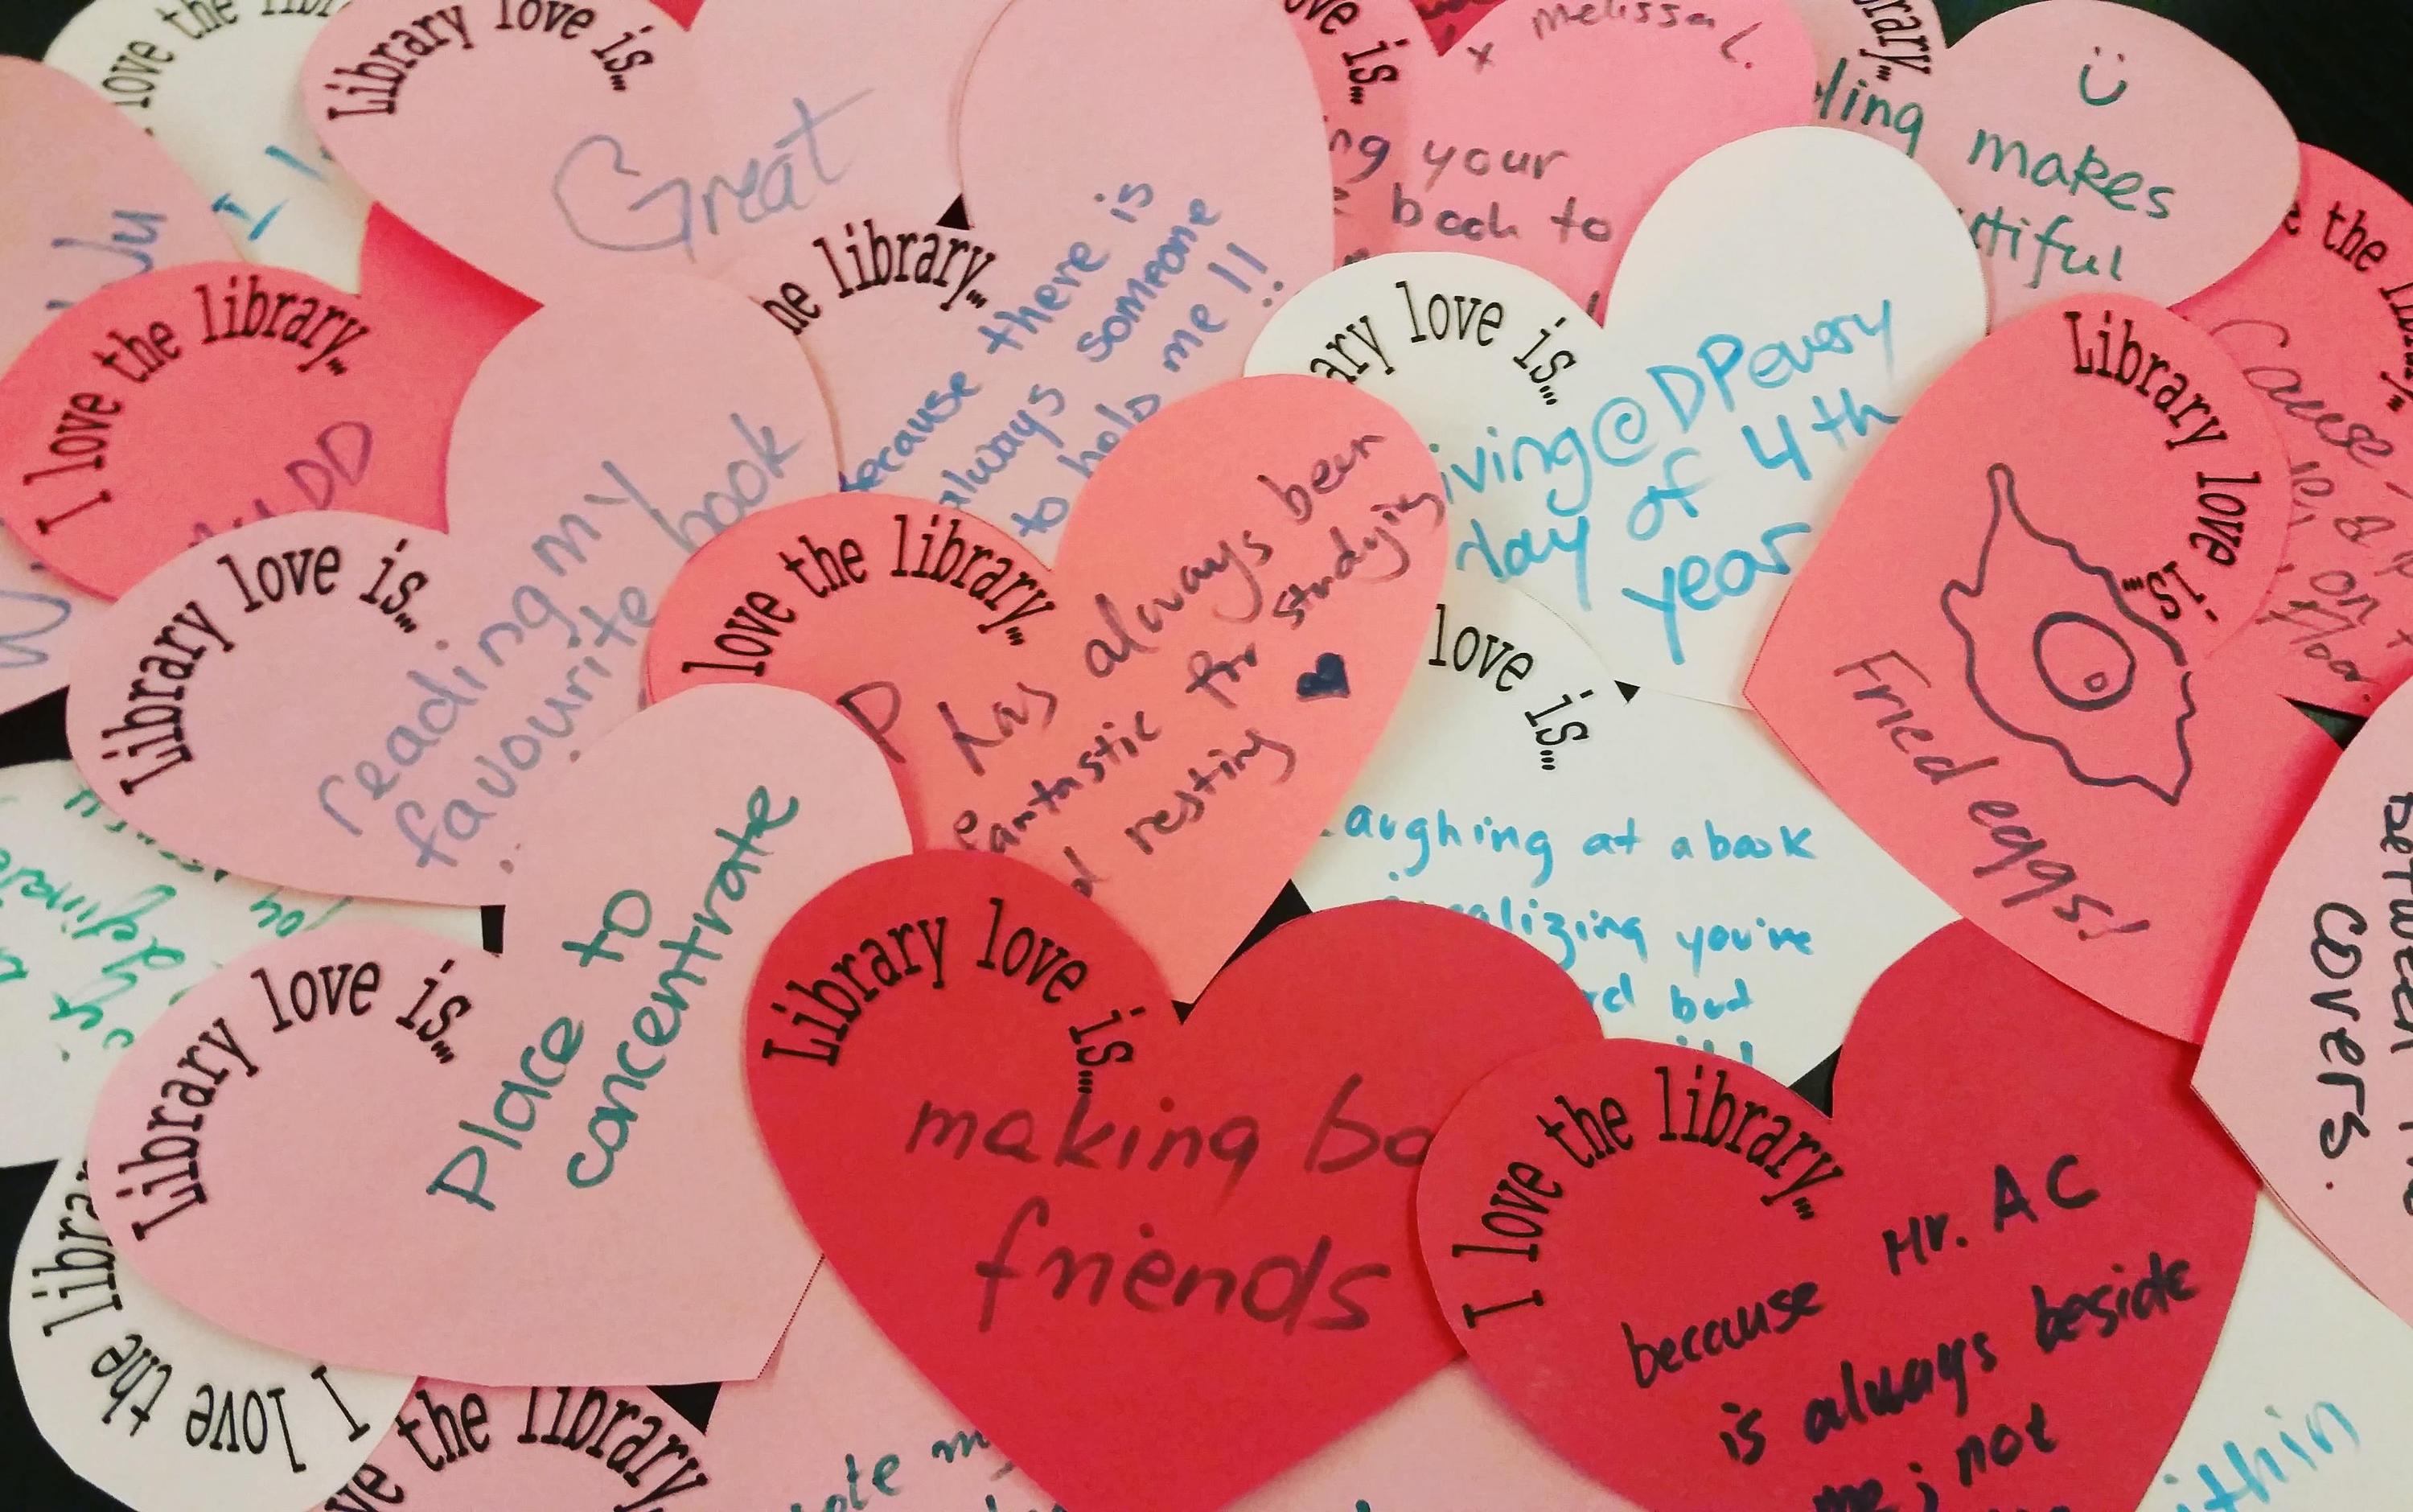 love the
Library love is...
Great
ve is...
x Melissa L.
ng your
book to
rary...
ling makes
tiful
the
Cause
on
floor.
I love the library...
he library...
because there is
always someone
to help me!!
ary love is...
iving @ DP every
day of 4th
year
Library love is...
Fried eggs!
Library love is...
reading my
favourite book
love the library...
P
has always been
fantastic for studying
d resting
love is...
aughing at a book
realizing you're
bud
between the
covers.
Library love is...
Place to
concentrate
Library love is...
making bo
friends
I love the library...
because Mr. AC
is always beside
me; not
I love the librar
ve the library
ote my
ithin